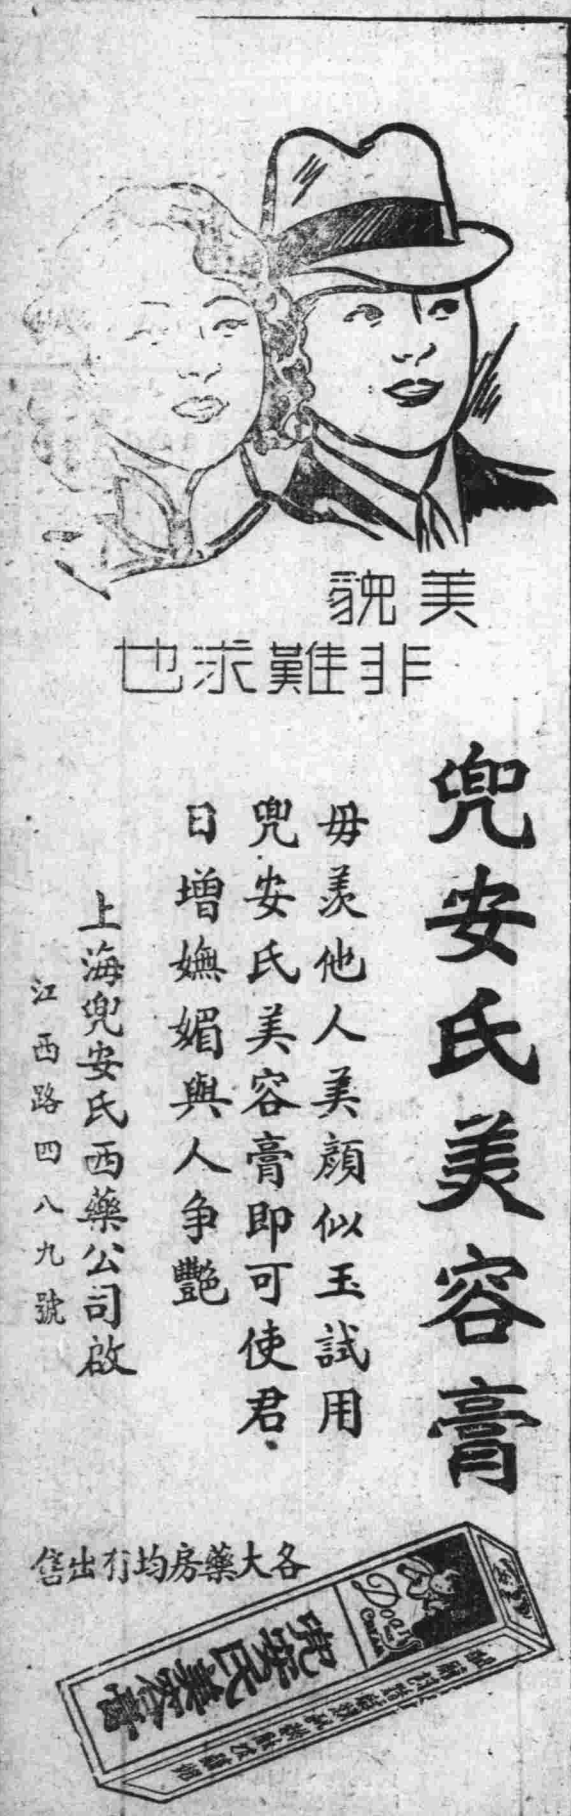 美貌
非難求也
兜安氏美容膏
毋羨他人美顏似玉試用
兜安氏美容膏即可使君
日增嫵媚與人争艷
上海兜安氏西藥公司啟
江西路四八九號
各大藥房均有出售
Doan's
兜安氏美容膏